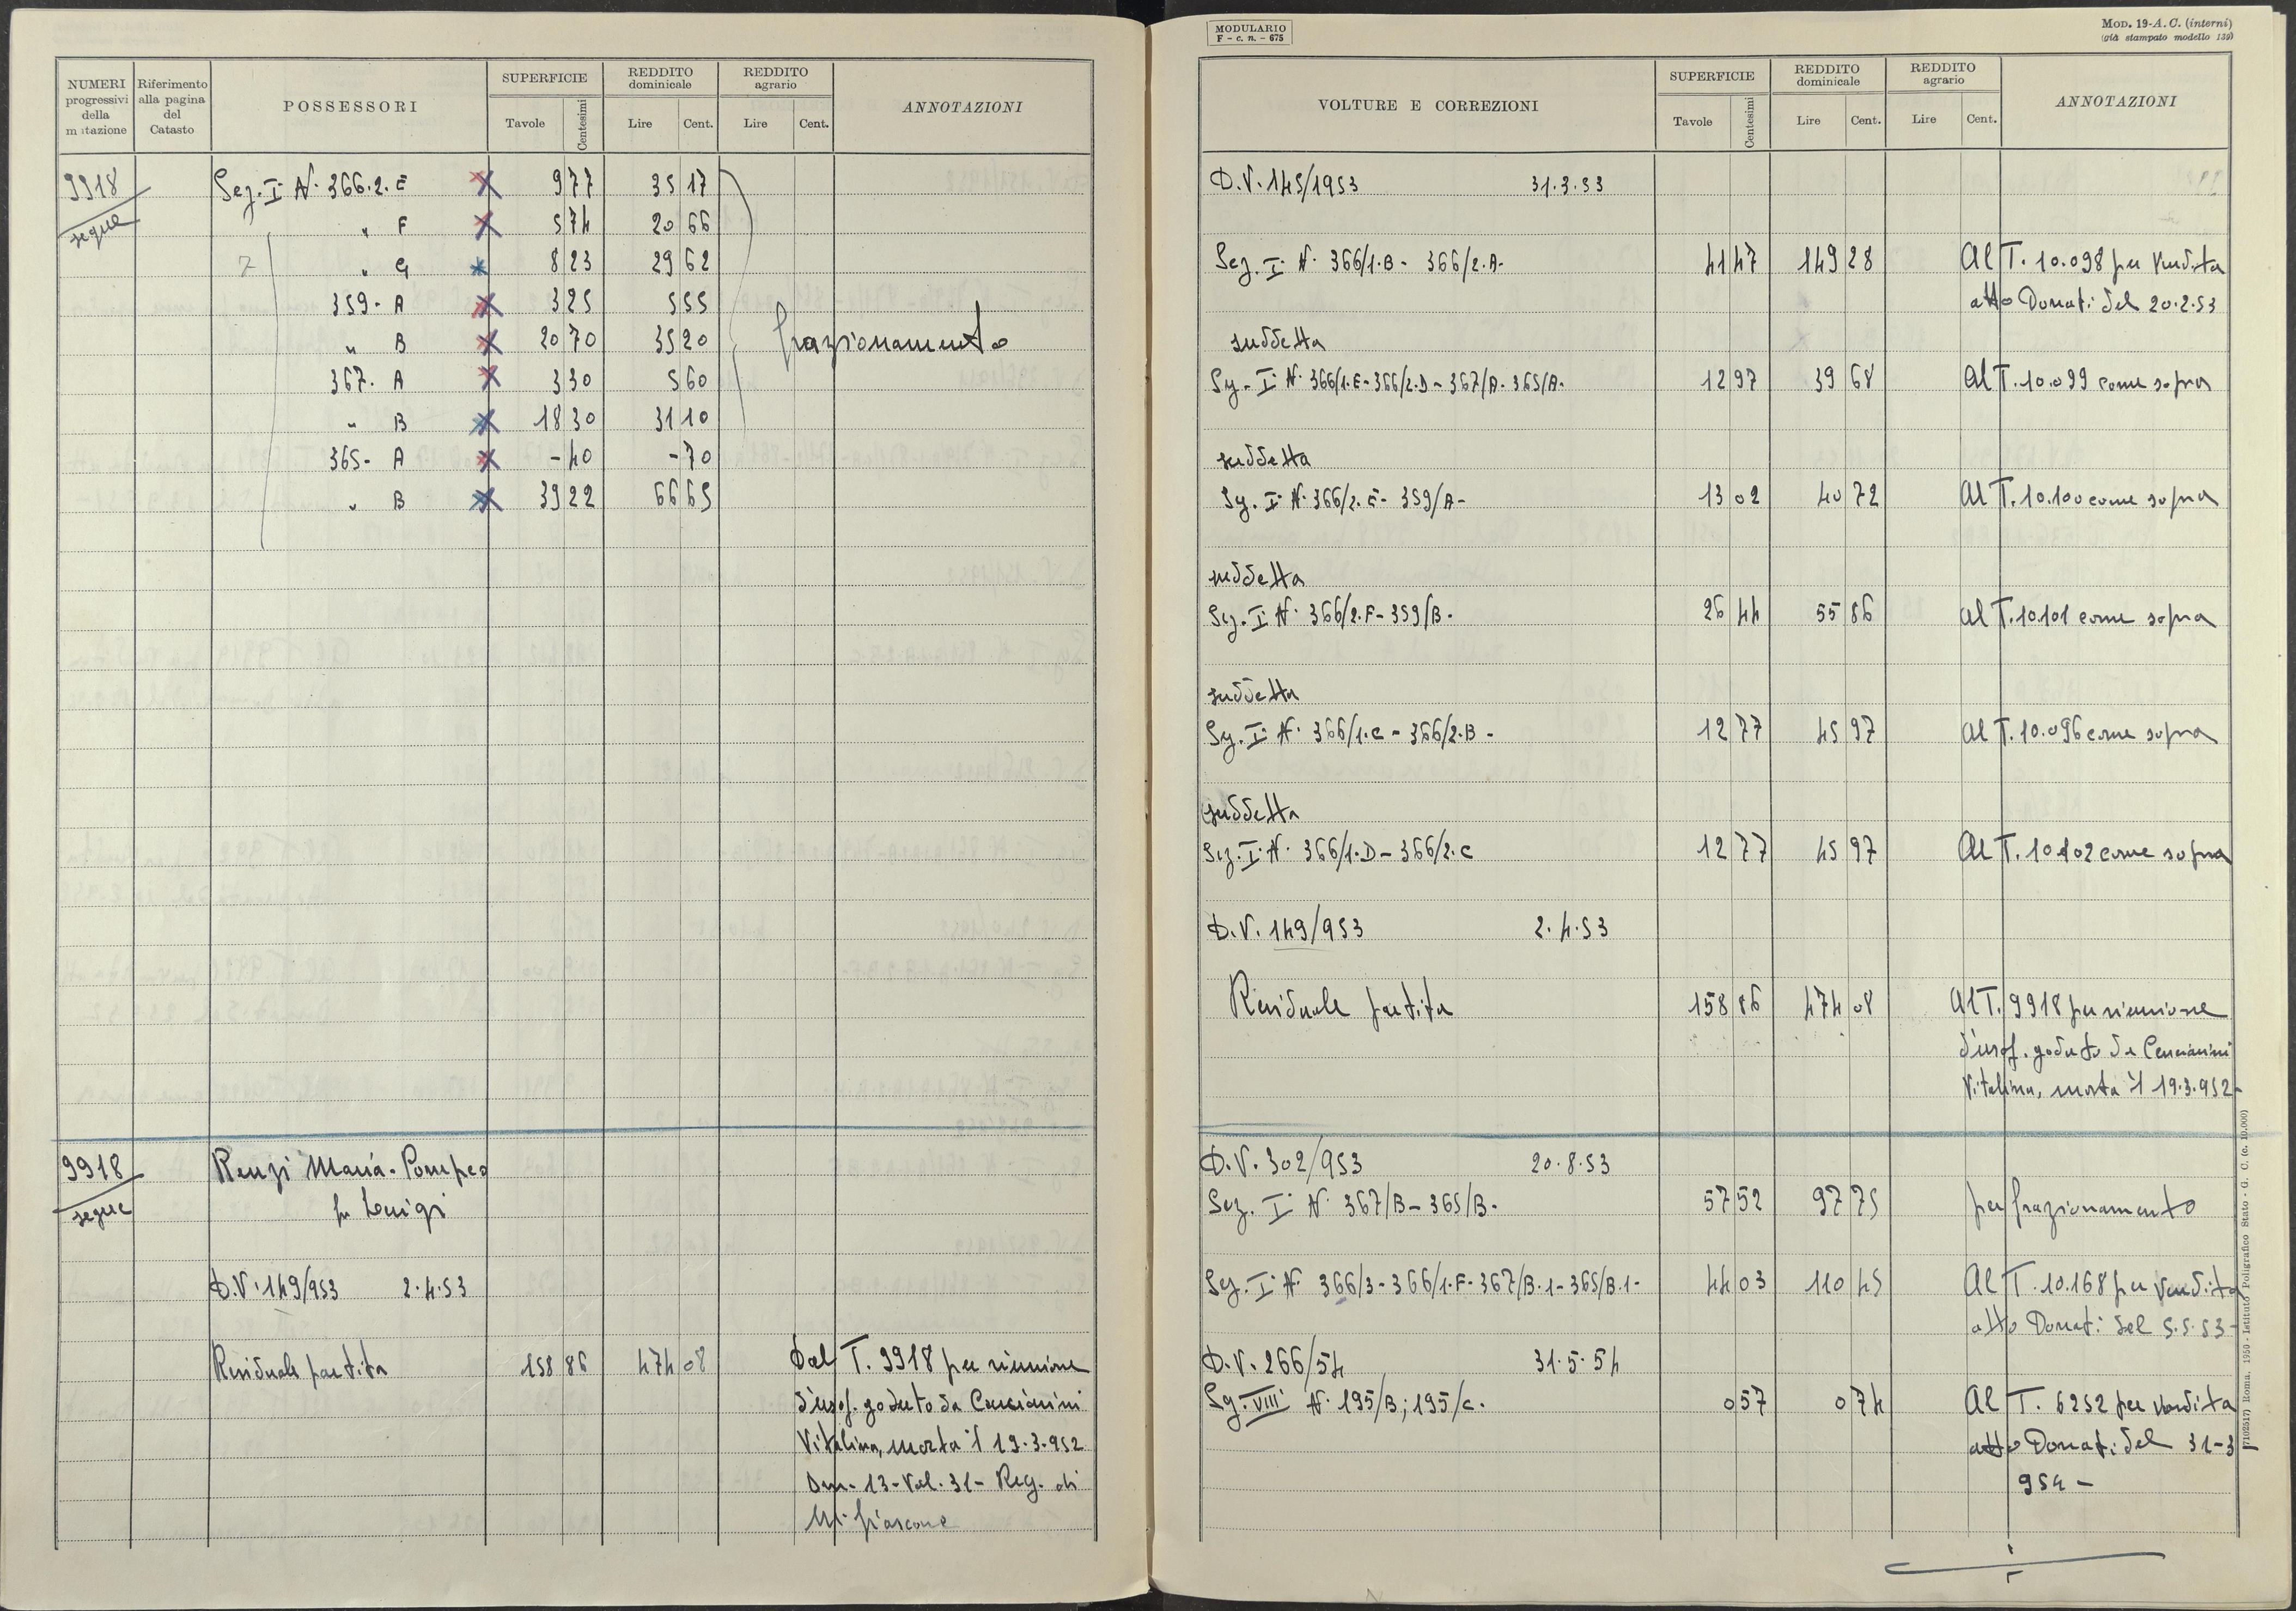 NUMERI progressivi della mutazione
Riferimento alla pagina del Catasto
POSSESSORI
SUPERFICIE
Tavole Centesimi
REDDITO dominicale
Lire Cent.
REDDITO agrario
Lire Cent.
ANNOTAZIONI
9918 Sez. I N. 366.2.E 9 77 35 17
segue " F 5 74 20 66
7 " G 8 23 29 62
359 - A 3 25 5 55
" B 20 70 35 20 frazionamento
367. A 3 30 5 60
" B 18 30 31 10
365 - A - 40 - 70
" B 39 22 66 65
9918 Renzi Maria - Pompeo
segue fu Luigi
D.V. 149/953 2.4.53
Residuale partita 158 86 474 08 Dal T. 9918 per riunione
d'usof. goduto da Cencianini
Vitalina, morta il 19.3.952
Den. 13 - Vol. 31 - Reg. di
M. fiascone
MODULARIO
F - c. n. - 675
MOD. 19-A. C. (interni)
(già stampato modello 139)
VOLTURE E CORREZIONI
SUPERFICIE
Tavole Centesimi
REDDITO dominicale
Lire Cent.
REDDITO agrario
Lire Cent.
ANNOTAZIONI
D.V. 145/1953 31.3.53
Sez. I N. 366/1.B - 366/2.A - 41 47 149 28 Al T. 10.098 per vendita
atto Donati del 20.2.53
suddetta
Sez. I N. 366/1.E - 366/2.D - 367/A - 365/A - 12 97 39 68 Al T. 10.099 come sopra
suddetta
Sez. I N. 366/2.E - 359/A - 13 02 40 72 Al T. 10.100 come sopra
suddetta
Sez. I N. 366/2.F - 359/B - 26 44 55 86 Al T. 10.101 come sopra
suddetta
Sez. I N. 366/1.C - 366/2.B - 12 77 45 97 Al T. 10.096 come sopra
suddetta
Sez. I N. 366/1.D - 366/2.C 12 77 45 97 Al T. 10.102 come sopra
D.V. 149/953 2.4.53
Residuale partita 158 86 474 08 Al T. 9918 per riunione
d'usof. goduto da Cencianini
Vitalina, morta il 19.3.952 -
D.V. 302/953 20.8.53
Sez. I N. 367/B - 365/B - 57 52 97 75 per frazionamento
Sez. I N. 366/3 - 366/1.F - 367/B.1 - 365/B.1 - 44 03 110 45 Al T. 10.168 per vendita
atto Donati del 5.5.53 -
D.V. 266/54 31.5.54
Sez. VIII N. 195/B; 195/C. 0 57 0 74 Al T. 6252 per vendita
atto Donati del 31-3
954 -
(7102517) Roma, 1950 - Istituto Poligrafico Stato - G. C. (c. 10.000)